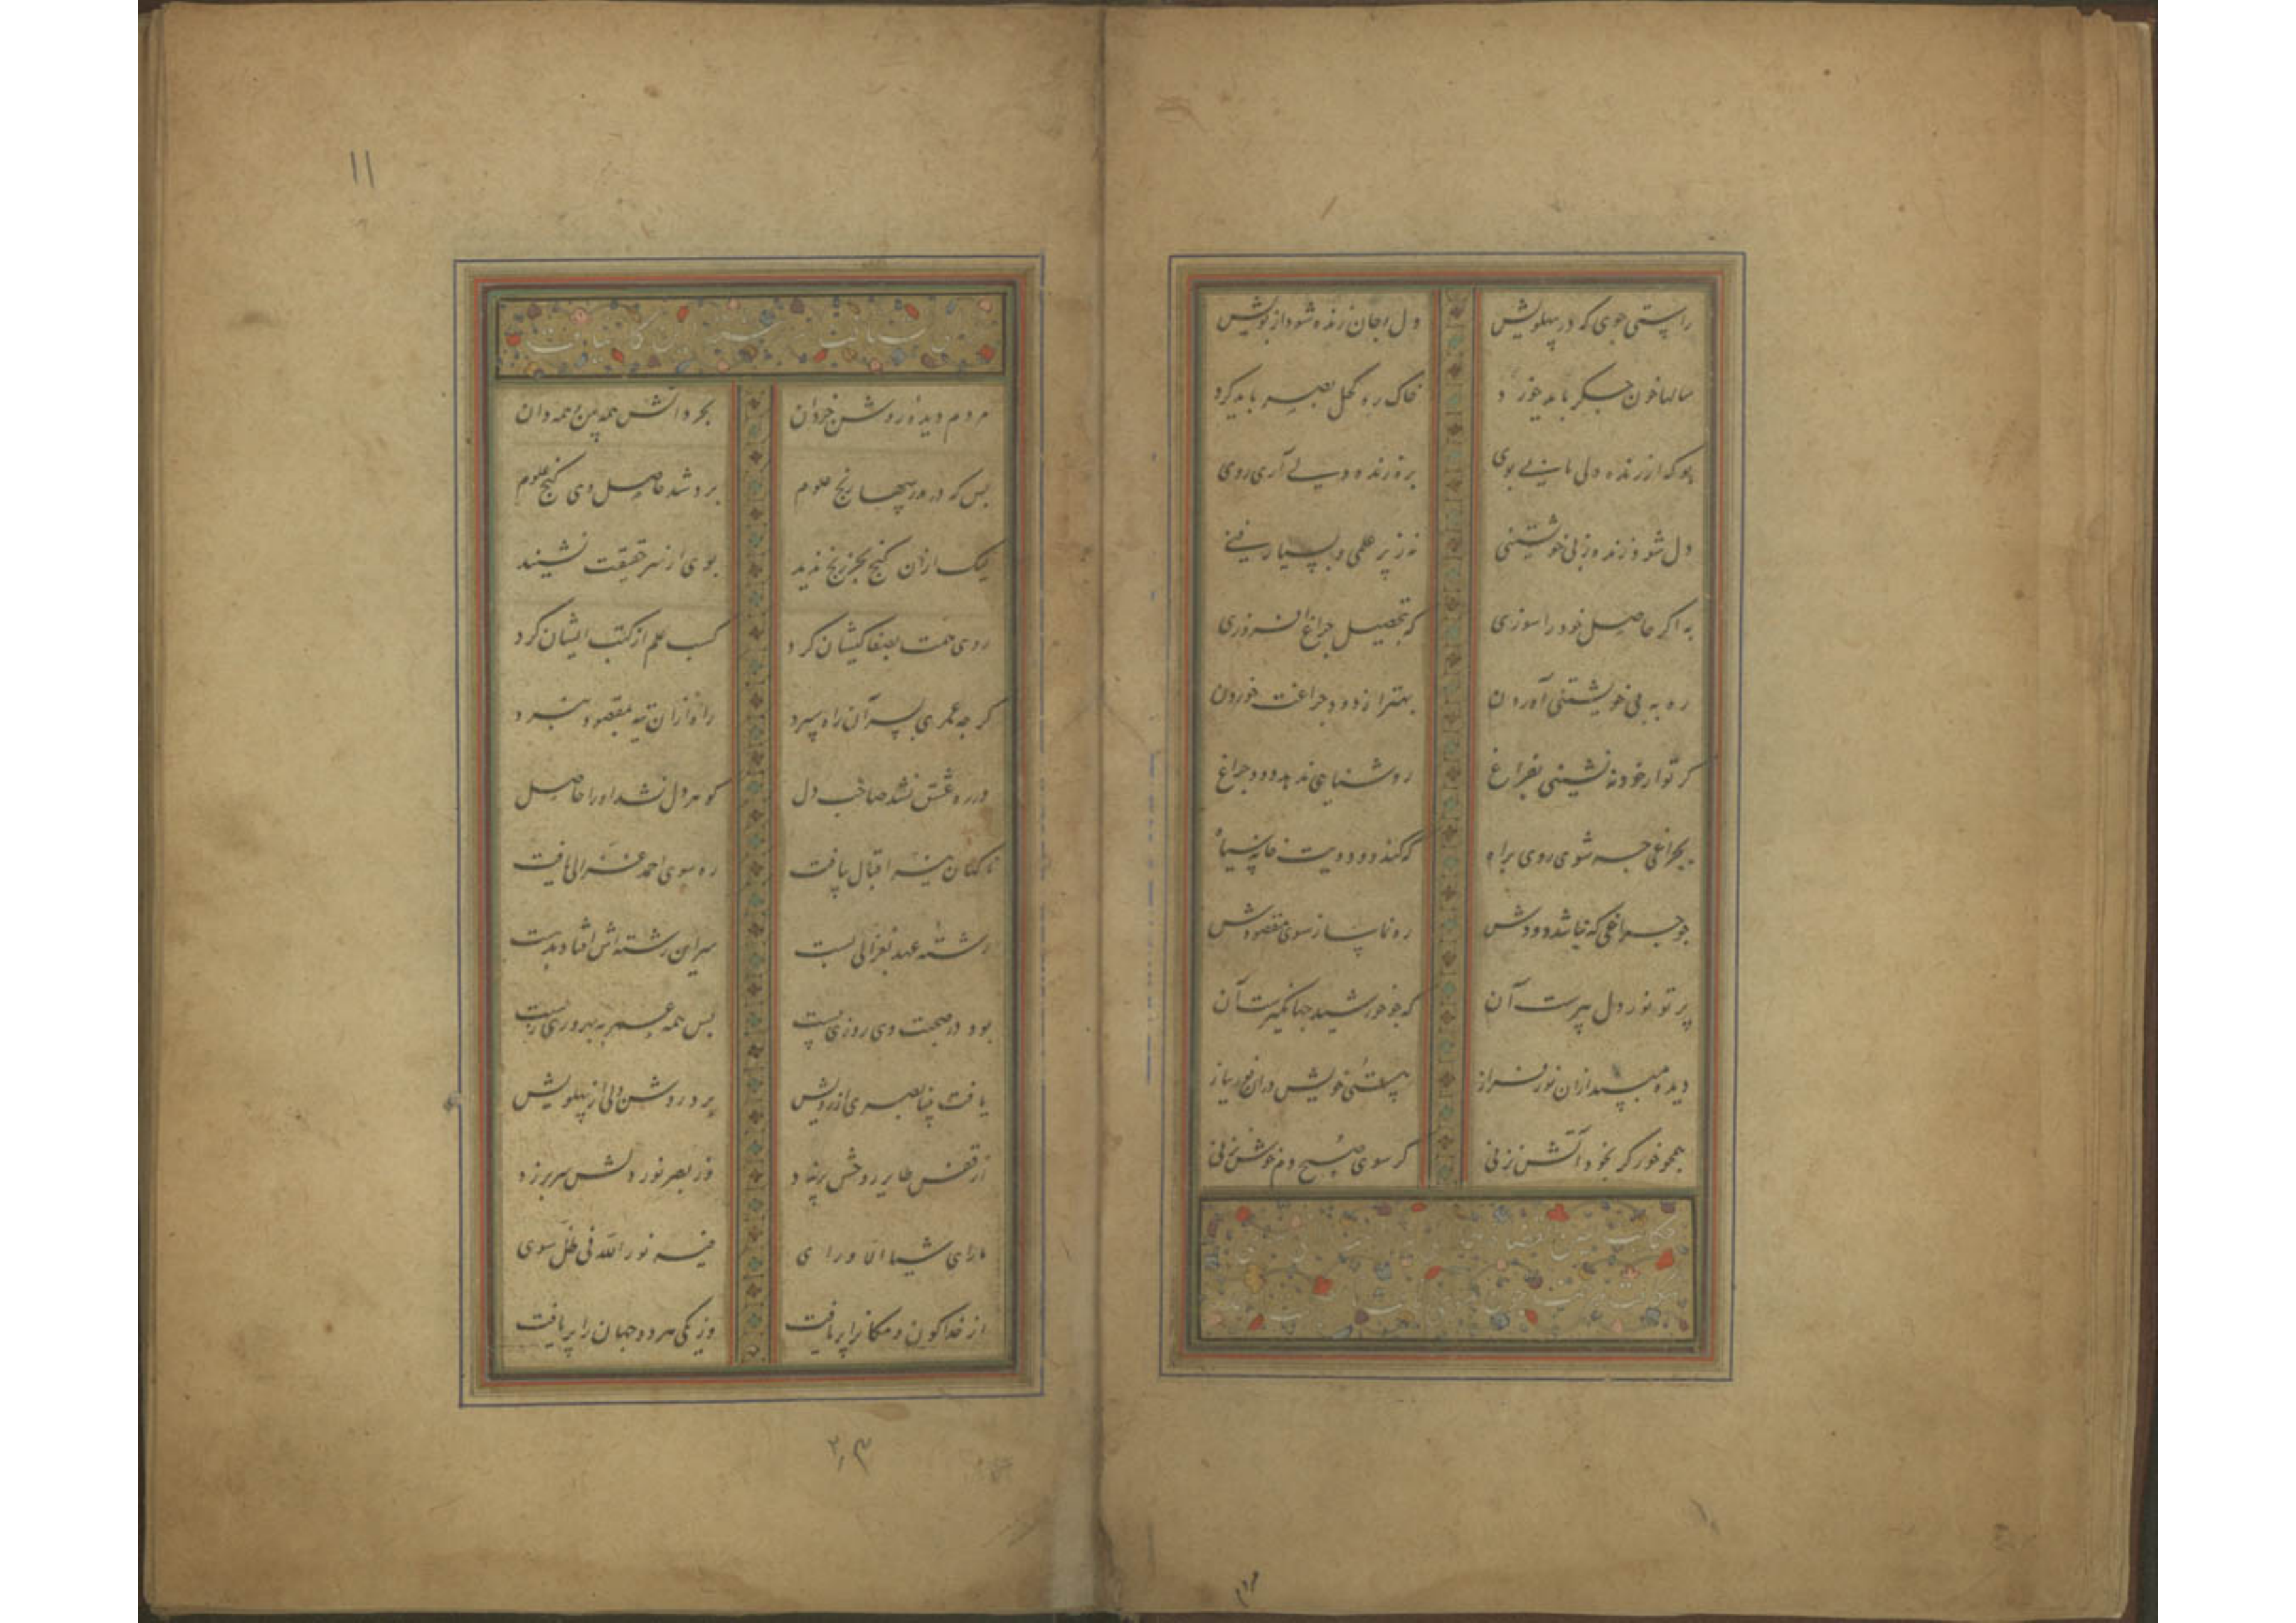 راستی جوی که در پهلویش دل و جان زنده شود از بویش
سالها خون جگر باید خورد خاک ره کحل بصر باید کرد
بو که از زنده دلی یابی بوی بره زنده دلی آری روی
دل شود زنده ز بی خویشتنی نه ز پر علمی و بسیار فنی
به اگر حاصل خود را سوزی که بتحصیل چراغ افروزی
ره به بی خویشتنی آوردن بهتر از دود چراغت خوردن
گر تو از خود ننشینی بفراغ روشنایی ندهد دود چراغ
بچراغی چه شوی روی براه که کند دود ویت خانه سیاه
جو چراغی که نباشد دودش ره نماید سوی مقصودش
پرتو نور دل پیرست آن که جو خورشید جهانگیرست آن
دیده مپسند ازان نور فراز پستی خویش دران نور بباز
همجو خور گر بخود آتش زنی گر سوی صبح دم خوش نزنی
حکایت
مردم دیده روشن خردان بحر دانش همه بین و همه دان
بس که در مدرسها رنج علوم برد شد حاصل وی گنج علوم
لیک ازان گنج بجز رنج ندید بوی از سر حقیقت نشنید
روی همت بصفا کیشان کرد کسب علم از کتب ایشان کرد
گر چه عمری بسر آن راه سپرد راه ازان تیه بمقصود نبرد
در ره عشق نشد صاحب دل گوهر دل نشد او را حاصل
ناگهان میر اقبال بیافت ره سوی احمد غزالی یافت
رشته عهد بغزالی بست سر این رشته اش افتاد بدست
بود در صحبت وی روزی بیست پس همه عمر به بهروزی زیست
یافت بینا بصری از رویش برد روشن دلی از پهلویش
از قفس طایر روحش بر زد وز بصر نور دلش سر بر زد
ما رای شیئا الا و رای فیه نور الله فی ظل سوی
از خدا کون و مکانرا پر یافت وز یکی هر دو جهان را پر یافت
۱۱